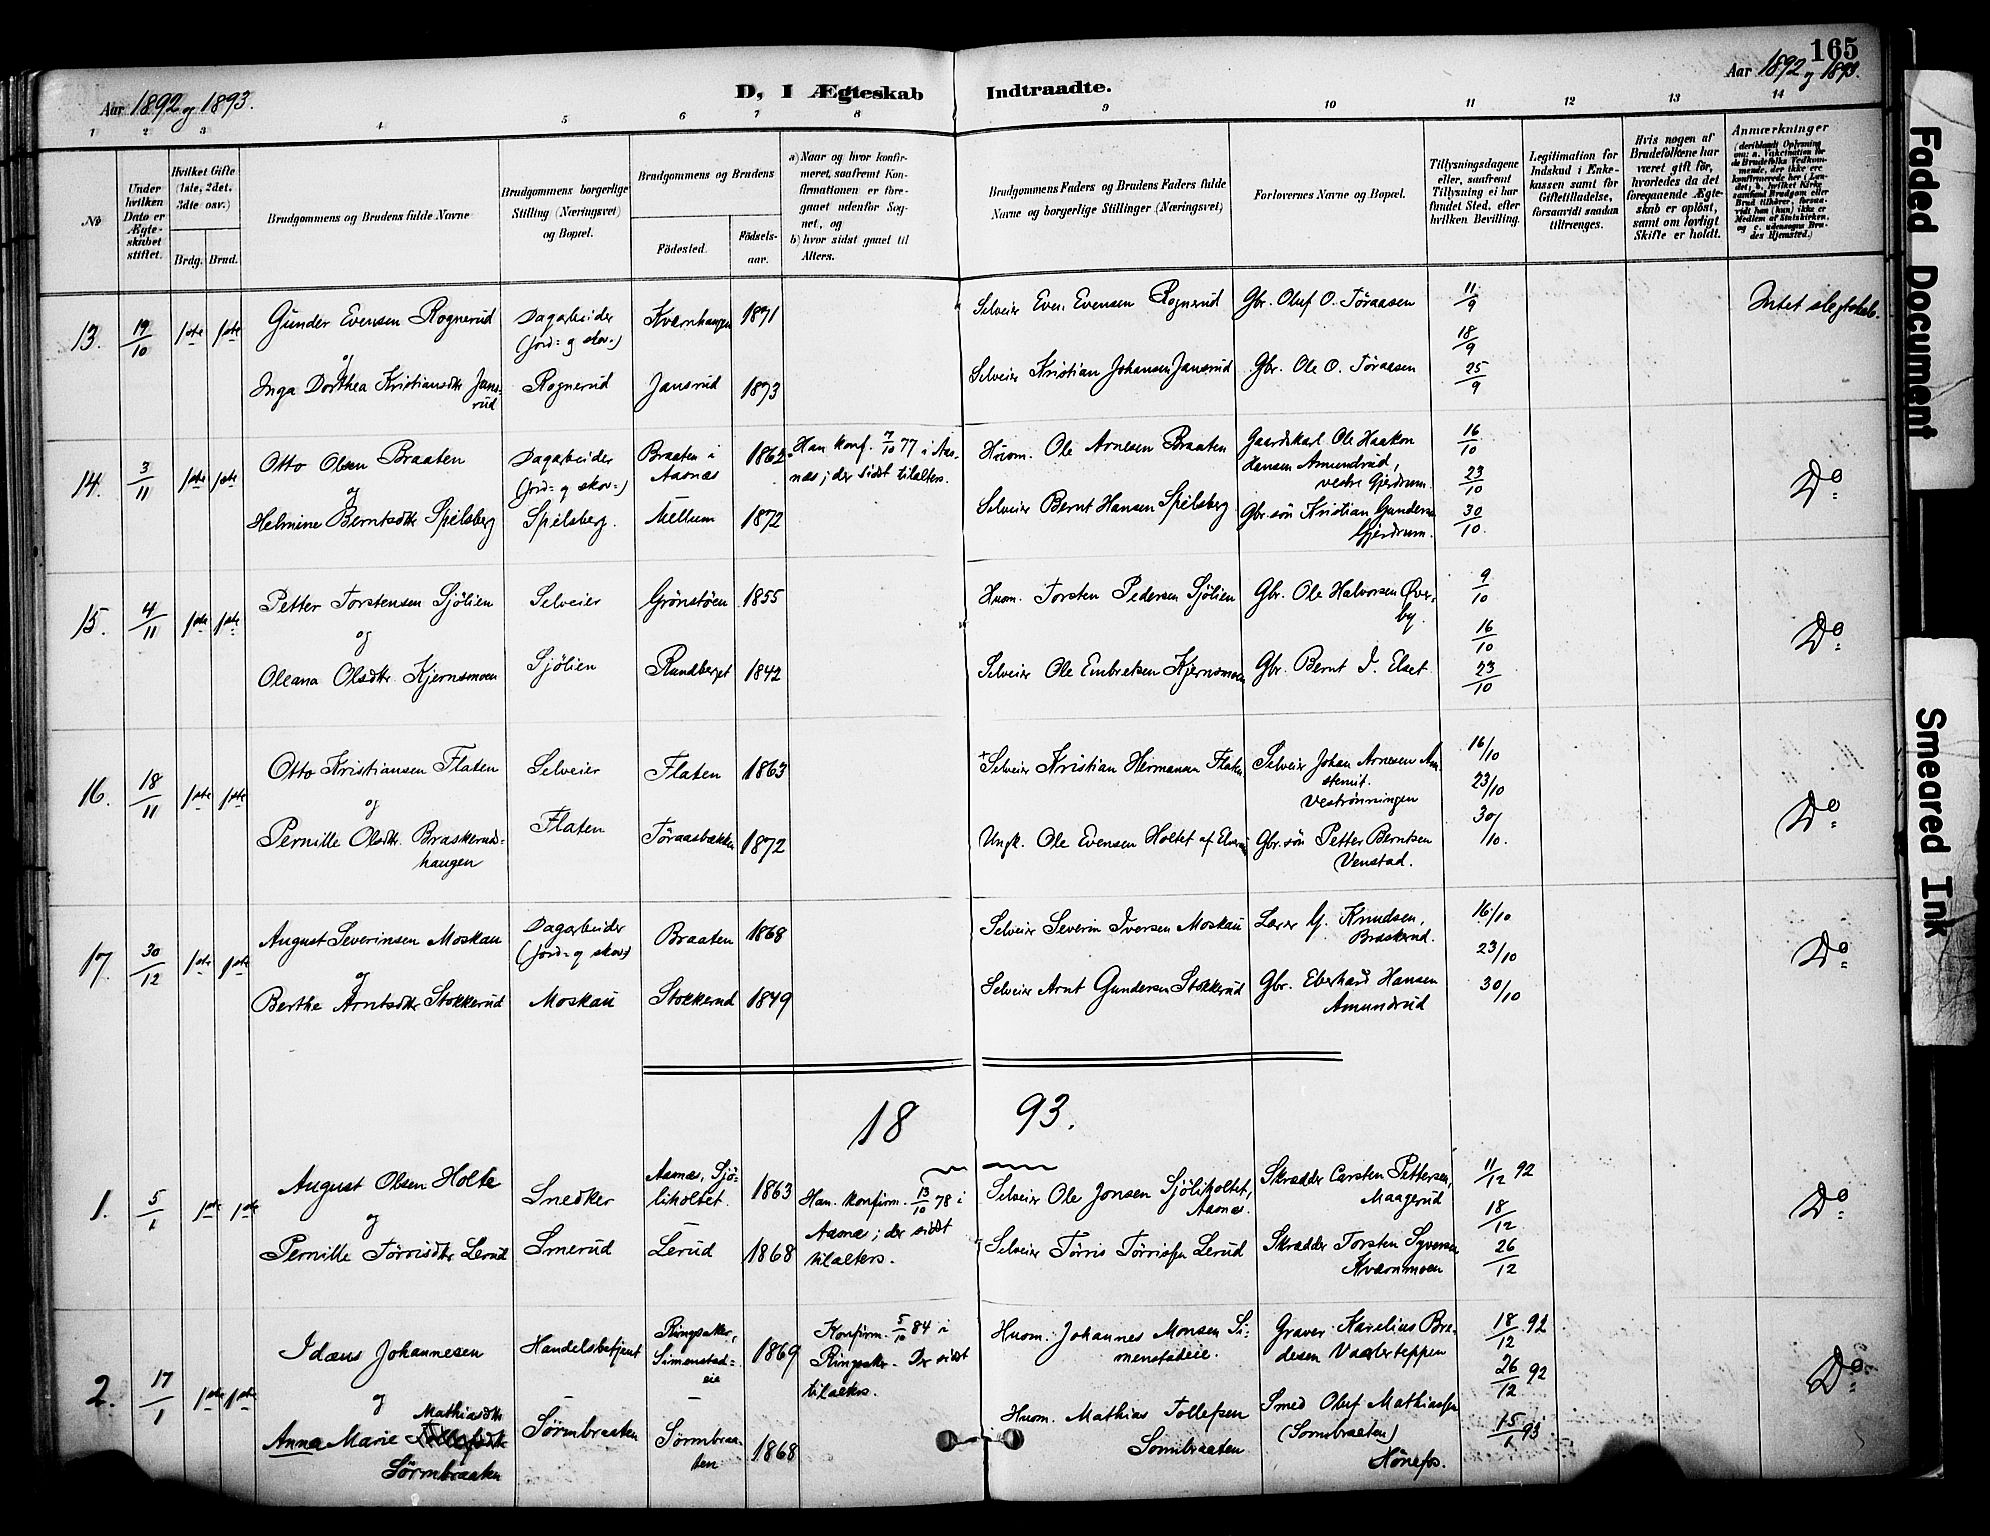 165
Aar 1892 og 1893.
D, I Ægteskab Indtraadte.
Aar 1892 og 1893.
1 2 3 4 5 6 7 8 9 10 11 12 13 14
No
Under hvilken Dato er Ægteskabet stiftet.
Hvilket Gifte (1ste, 2det, 3die osv.)
Brdg. Brud.
Brudgommens og Brudens fulde Navne
Brudgommens borgerlige Stilling (Næringsvei) og Bopæl.
Brudgommens og Brudens
Födested. Födselsaar.
a) Naar og hvor konfirmeret, saafremt Konfirmationen er foregaaet udenfor Sognet, og
b) hvor sidst gaaet til Alters.
Brudgommens Faders og Brudens Faders fulde Navne og borgerlige Stillinger (Næringsvei)
Forlovernes Navne og Bopæl.
Tillysningsdagene eller, saafremt Tillysning ei har fundet Sted, efter hvilken Bevilling.
Legitimation for Indskud i Enkekassen samt for Giftetilladelse, forsaavidt saadan tiltrænges.
Hvis nogen af Brudefolkene har været gift før, hvorledes da det foregaaende Ægteskab er opløst, samt om lovligt Skifte er holdt.
Anmærkninger
13. 19/10 1ste 1ste Gunder Evensen Rognerud Dagarbeider (jord- og skov-) Kværnhaugen 1871 Selveier Even Evensen Rognerud Gbr. Oluf O. Töraasen 11/9 Intet slegtskab.
og 18/9
Inga Dorthea Kristiansdtr Jansrud Rognerud Jansrud 1873 Selveier Kristian Johansen Jansrud Gbr. Ole O. Töraasen 25/9
14. 3/11 1ste 1ste Otto Olsen Braaten Dagarbeider (jord- og skov-) Braaten i Aasnæs 1862 Han konf. 7/10 77 i Aasnæs; der sidst tilalters. Husm. Ole Arnesen Braaten Gaardskarl Ole Haakon Hansen Amundrud, vestre Gjerdrum. 16/10 Do
og 23/10
Helmine Berntsdtr Spilsberg Spilsberg. Mellum 1872 Selveier Bernt Hansen Spilsberg Gbr.sön Kristian Gundersen Gjerdrum. 30/10.
15. 4/11 1ste 1ste Petter Torstensen Sjölien Selveier Grönstöen 1855 Husm. Torsten Pedersen Sjölien Gbr. Ole Halvorsen Överby. 9/10 Do
og 16/10
Oleana Olsdtr. Kjernsmoen Sjölien Rundberget 1842 Selveier Ole Embretsen Kjernsmoen Gbr. Bernt I. Elset. 23/10
16. 18/11 1ste 1ste Otto Kristiansen Flaten Selveier Flaten 1863 + Selveier Kristian Hermansen Flaten Selveier Johan Arnesen Veströnningen 16/10 Do
og 23/10
Pernille Olsdtr. Braskerudhaugen Flaten Töraasbækken 1872 Ungk. Ole Evensen Holtet af Elverum Gbr.sön Petter Berntsen Venstad. 30/10.
17. 30/12 1ste 1ste August Severinsen Moskau Dagarbeider (jord- og skov-) Braaten 1868 Selveier Severin Iversen Moskau Lærer G. Knudsen, Braskerud. 16/10 Do
og 23/10
Berthe Arntsdtr Stokkerud Moskau Stokkerud 1849 Selveier Arnt Gundersen Stokkerud Gbr. Eberhard Hansen Amundrud 30/10
18 93.
1. 5/1 1ste 1ste August Olsen Holte Snedker Aasnæs, Sjöliholtet 1863 Han konfirm. 13/10 78 i Aasnæs; der sidst tilalters. Selveier Ole Jonsen Sjöliholtet, Aasnæs. Skrædder Carsten Pettersen, Maagerud 11/12 92 Do
og 18/12
Pernille Törrisdtr Lerud Smerud Lerud 1868 + Selveier Törris Törrisen Lerud Skrædder Torsten Syversen Kværnmoen 26/12
2. 17/1 1ste 1ste Idæus Johannesen Handelsbetjent Ringsaker, Simenstadeie 1869 Konfirm. 5/10 84 i Ringsaker. Der sidst tilalters. Husm. Johannes Monsen Simenstadeie. Graver Karelius Bradesen Vaalerteppen 18/12 92 Do
og 26/12 92
Anna Marie Mathiasdtr Sörmbraaten Sörmbraaten Sörmbraaten 1868 Husm. Mathias Tollefsen Sormbraaten Smed Oluf Mathiassen (Sormbraaten) Hönefos. 15/1 93
Faded Document
Smeared Ink